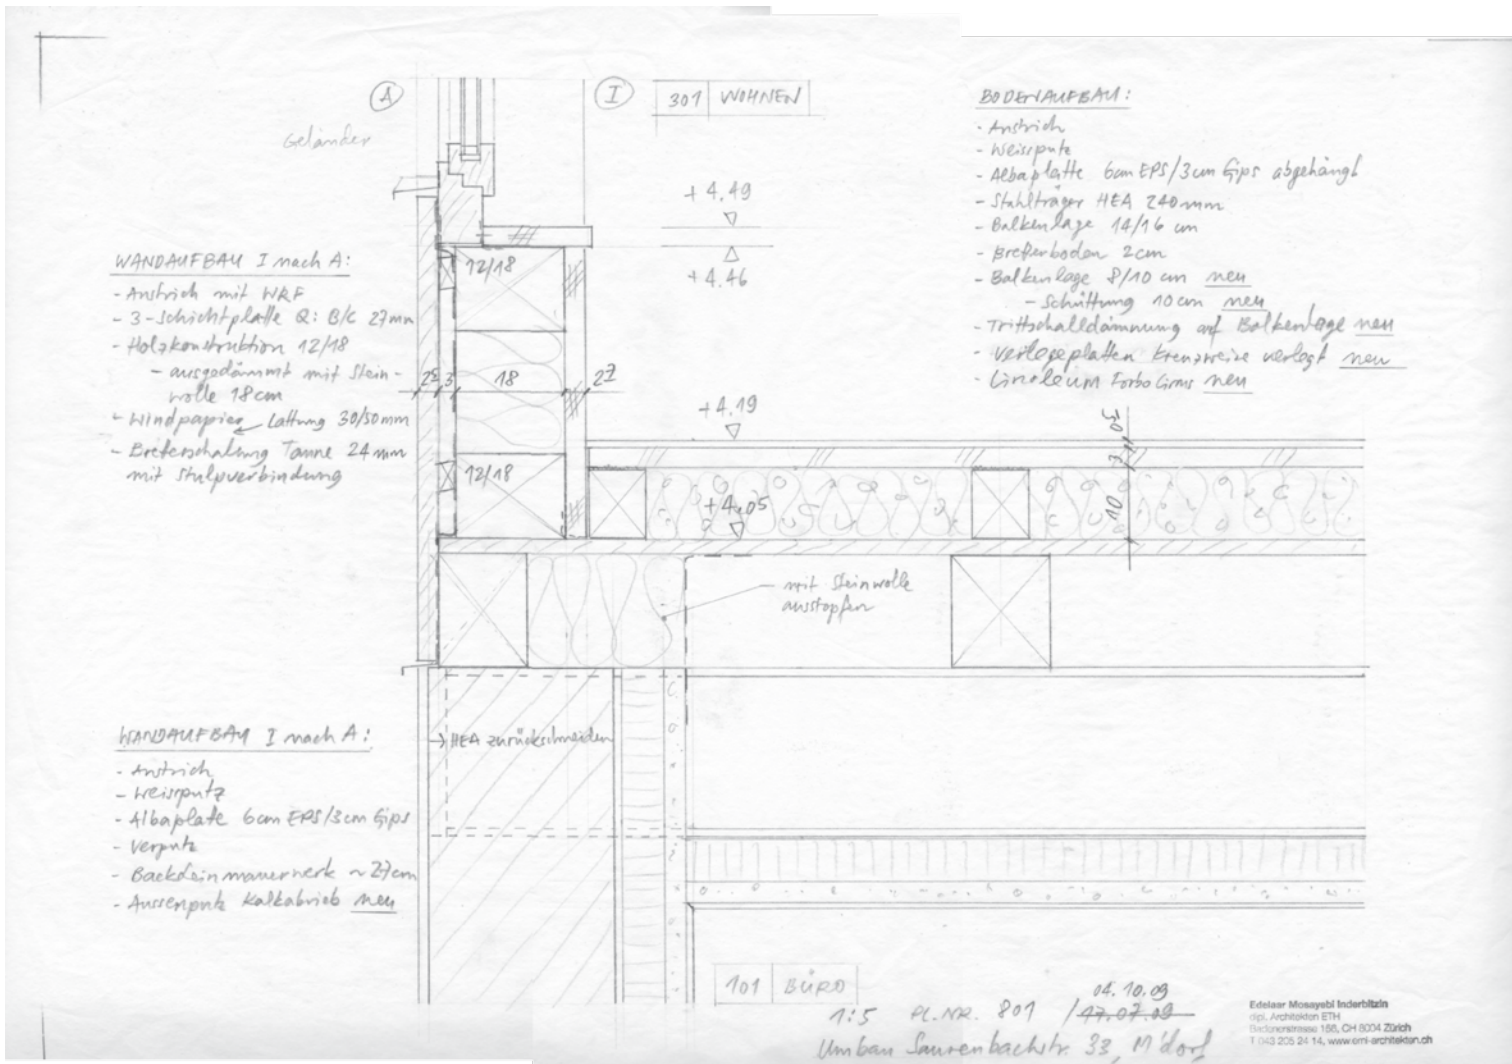 A
I
301 WOHNEN
Geländer
+4.49
+4.46
WANDAUFBAU I nach A:
- Anstrich mit WRF
- 3-Schichtplatte Q: B/C 27mm
- Holzkonstruktion 12/18
- ausgedämmt mit Stein-
wolle 18cm
- Windpapier Lattung 30/50mm
- Bretterschalung Tanne 24mm
mit Stulpverbindung
BODENAUFBAU:
- Anstrich
- Weissputz
- Albaplatte 6cm EPS/3cm Gips abgehängt
- Stahlträger HEA 240mm
- Balkenlage 14/16 cm
- Bretterboden 2cm
- Balkenlage 8/10 cm neu
- Schüttung 10cm neu
- Trittschalldämmung auf Balkenlage neu
- Verlegeplatten kreuzweise verlegt neu
- Linoleum Forbo Giubiasco neu
12/18
3
18
27
+4.19
12/18
+4.05
3
10
mit Steinwolle
ausstopfen
HEA zurückschneiden
WANDAUFBAU I nach A:
- Anstrich
- Weissputz
- Albaplatte 6cm EPS/3cm Gips
- Verputz
- Backsteinmauerwerk ~27cm
- Aussenputz Kalkabrieb neu
101 BÜRO
04.10.09
1:5 PL.NR. 801 / 17.07.09
Umbau Saurenbachstr. 33, M'dorf
Edelaar Mosayebi Inderbitzin
dipl. Architekten ETH
Badenerstrasse 156, CH 8004 Zürich
T 043 205 24 14, www.emi-architekten.ch